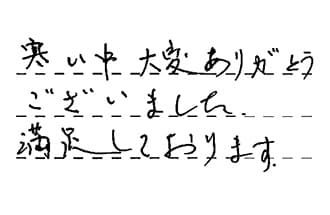 寒い中大変ありがとう
ございました.
満足しております.